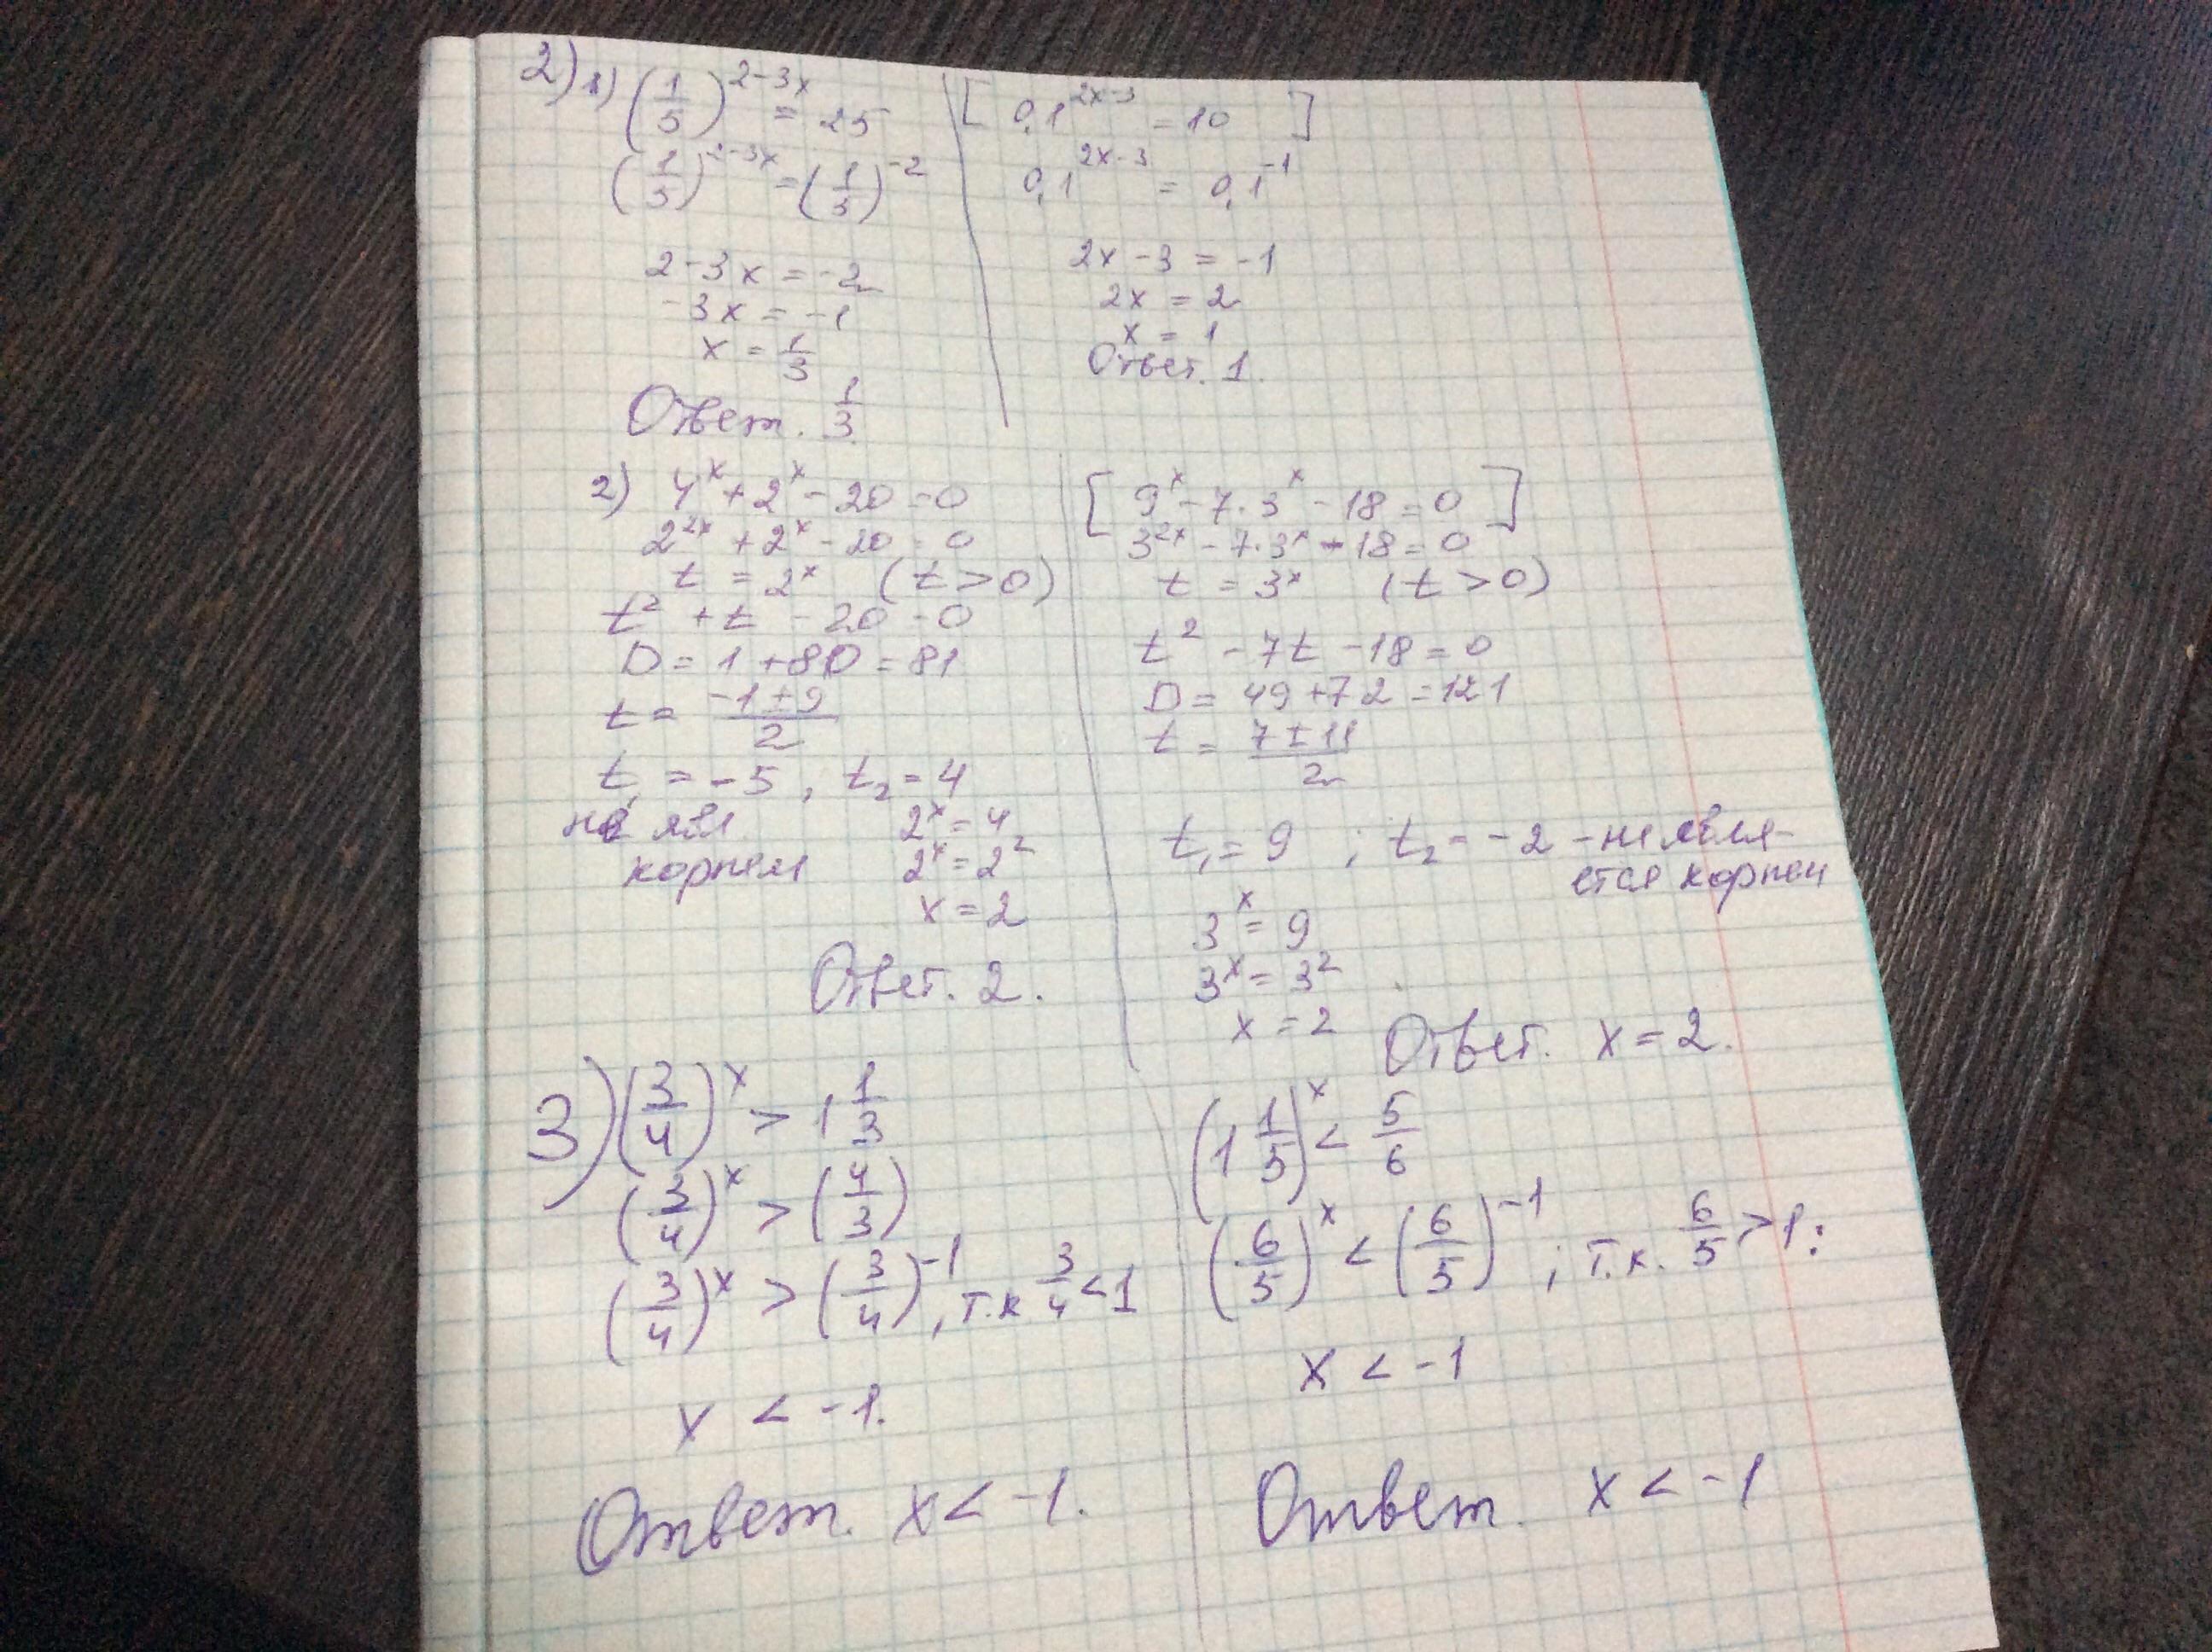 2) 1) (1/5)^(2-3x) = 25
(1/5)^(2-3x) = (1/5)^(-2)
2-3x = -2
-3x = -1
x = 1/3
Ответ. 1/3
[ 0,1^(2x-3) = 10 ]
0,1^(2x-3) = 0,1^(-1)
2x - 3 = -1
2x = 2
x = 1
Ответ. 1.
2) 4^x + 2^x - 20 = 0
2^(2x) + 2^x - 20 = 0
t = 2^x (t > 0)
t² + t - 20 = 0
D = 1 + 80 = 81
t = (-1 ± 9)/2
t₁ = -5, t₂ = 4
не явл. корнем
2^x = 4
2^x = 2²
x = 2
Ответ. 2.
[ 9^x - 7·3^x - 18 = 0 ]
3^(2x) - 7·3^x - 18 = 0
t = 3^x (t > 0)
t² - 7t - 18 = 0
D = 49 + 72 = 121
t = (7 ± 11)/2
t₁ = 9 ; t₂ = -2 - не явля-
ется корнем
3^x = 9
3^x = 3²
x = 2
Ответ. x = 2.
3) (3/4)^x > 1 1/3
(3/4)^x > (4/3)
(3/4)^x > (3/4)^(-1), т.к 3/4 < 1
x < -1.
Ответ. x < -1.
(1 1/5)^x < 5/6
(6/5)^x < (6/5)^(-1) ; т.к. 6/5 > 1:
x < -1
Ответ. x < -1